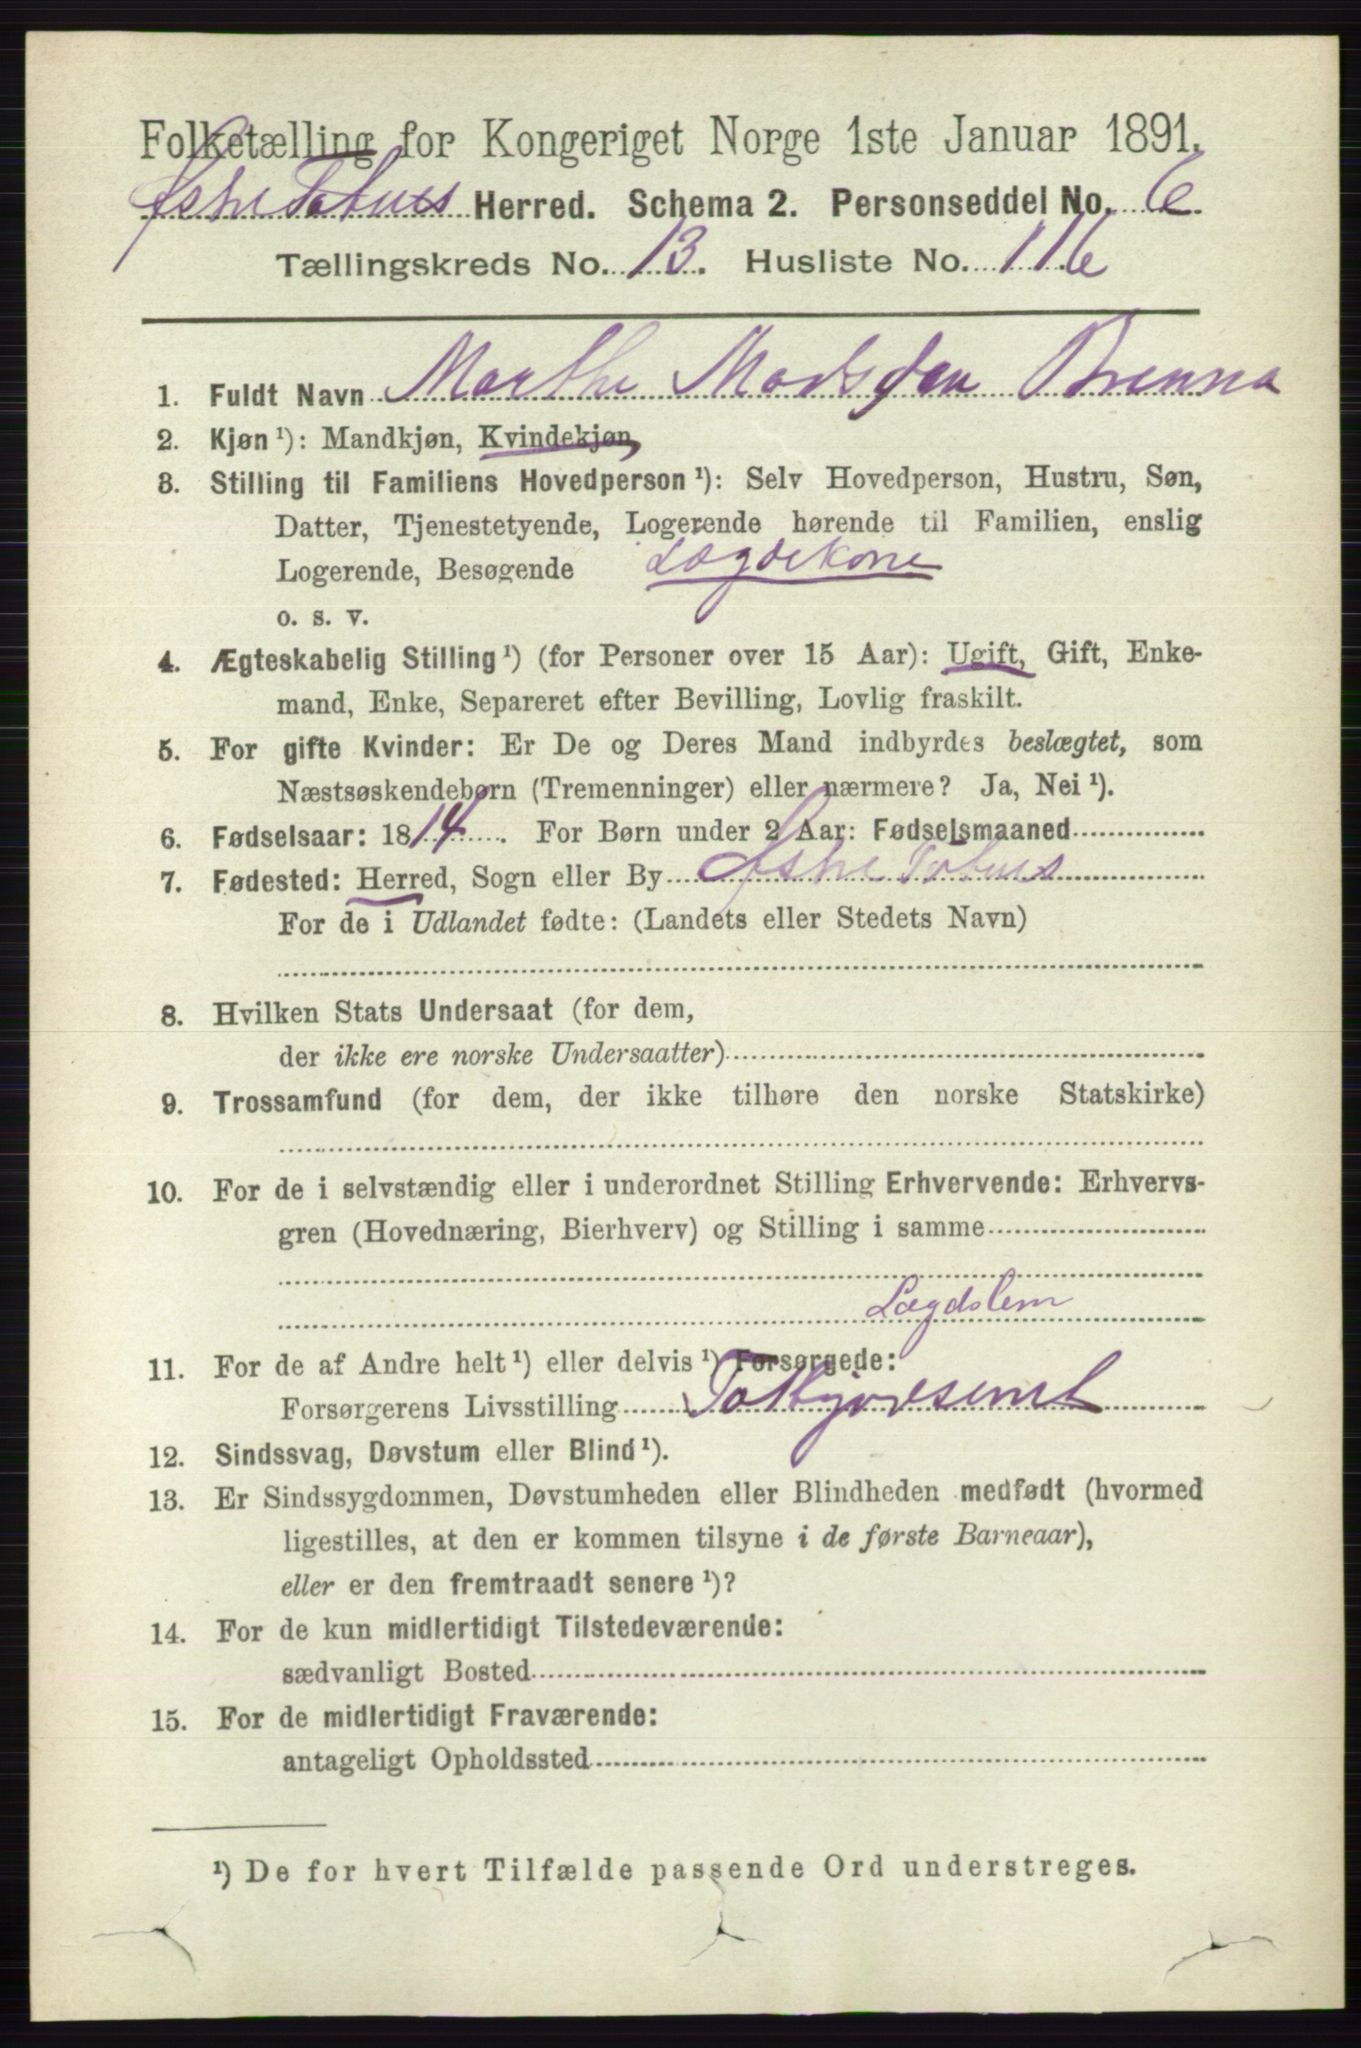 Folketælling for Kongeriget Norge 1ste Januar 1891.
Herred. Schema 2. Personseddel No. 6.
Tællingskreds No. 13. Husliste No. 116
1. Fuldt Navn Marthe Madsdau Brenna
2. Kjøn ¹): Mandkjøn, Kvindekjøn,
3. Stilling til Familiens Hovedperson ¹): Selv Hovedperson, Hustru, Søn,
Datter, Tjenestetyende, Logerende hørende til Familien, enslig
Logerende, Besøgende Lægdekone
o. s. v.
4. Ægteskabelig Stilling ¹) (for Personer over 15 Aar): Ugift, Gift, Enke-
mand, Enke, Separeret efter Bevilling, Lovlig fraskilt.
5. For gifte Kvinder: Er De og Deres Mand indbyrdes beslægtet, som
Næstsøskendebørn (Tremenninger) eller nærmere? Ja, Nei ¹).
6. Fødselsaar: 1814. For Børn under 2 Aar: Fødselsmaaned
7. Fødested: Herred, Sogn eller By
For de i Udlandet fødte: (Landets eller Stedets Navn)
8. Hvilken Stats Undersaat (for dem,
der ikke ere norske Undersaatter)
9. Trossamfund (for dem, der ikke tilhøre den norske Statskirke)
10. For de i selvstændig eller i underordnet Stilling Erhvervende: Erhvervs-
gren (Hovednæring, Bierhverv) og Stilling i samme
Lægdslem
11. For de af Andre helt ¹) eller delvis ¹) Forsørgede:
Forsørgerens Livsstilling
12. Sindssvag, Døvstum eller Blind ¹).
13. Er Sindssygdommen, Døvstumheden eller Blindheden medfødt (hvormed
ligestilles, at den er kommen tilsyne i de første Barneaar),
eller er den fremtraadt senere ¹)?
14. For de kun midlertidigt Tilstedeværende:
sædvanligt Bosted
15. For de midlertidigt Fraværende:
antageligt Opholdssted
¹) De for hvert Tilfælde passende Ord understreges.